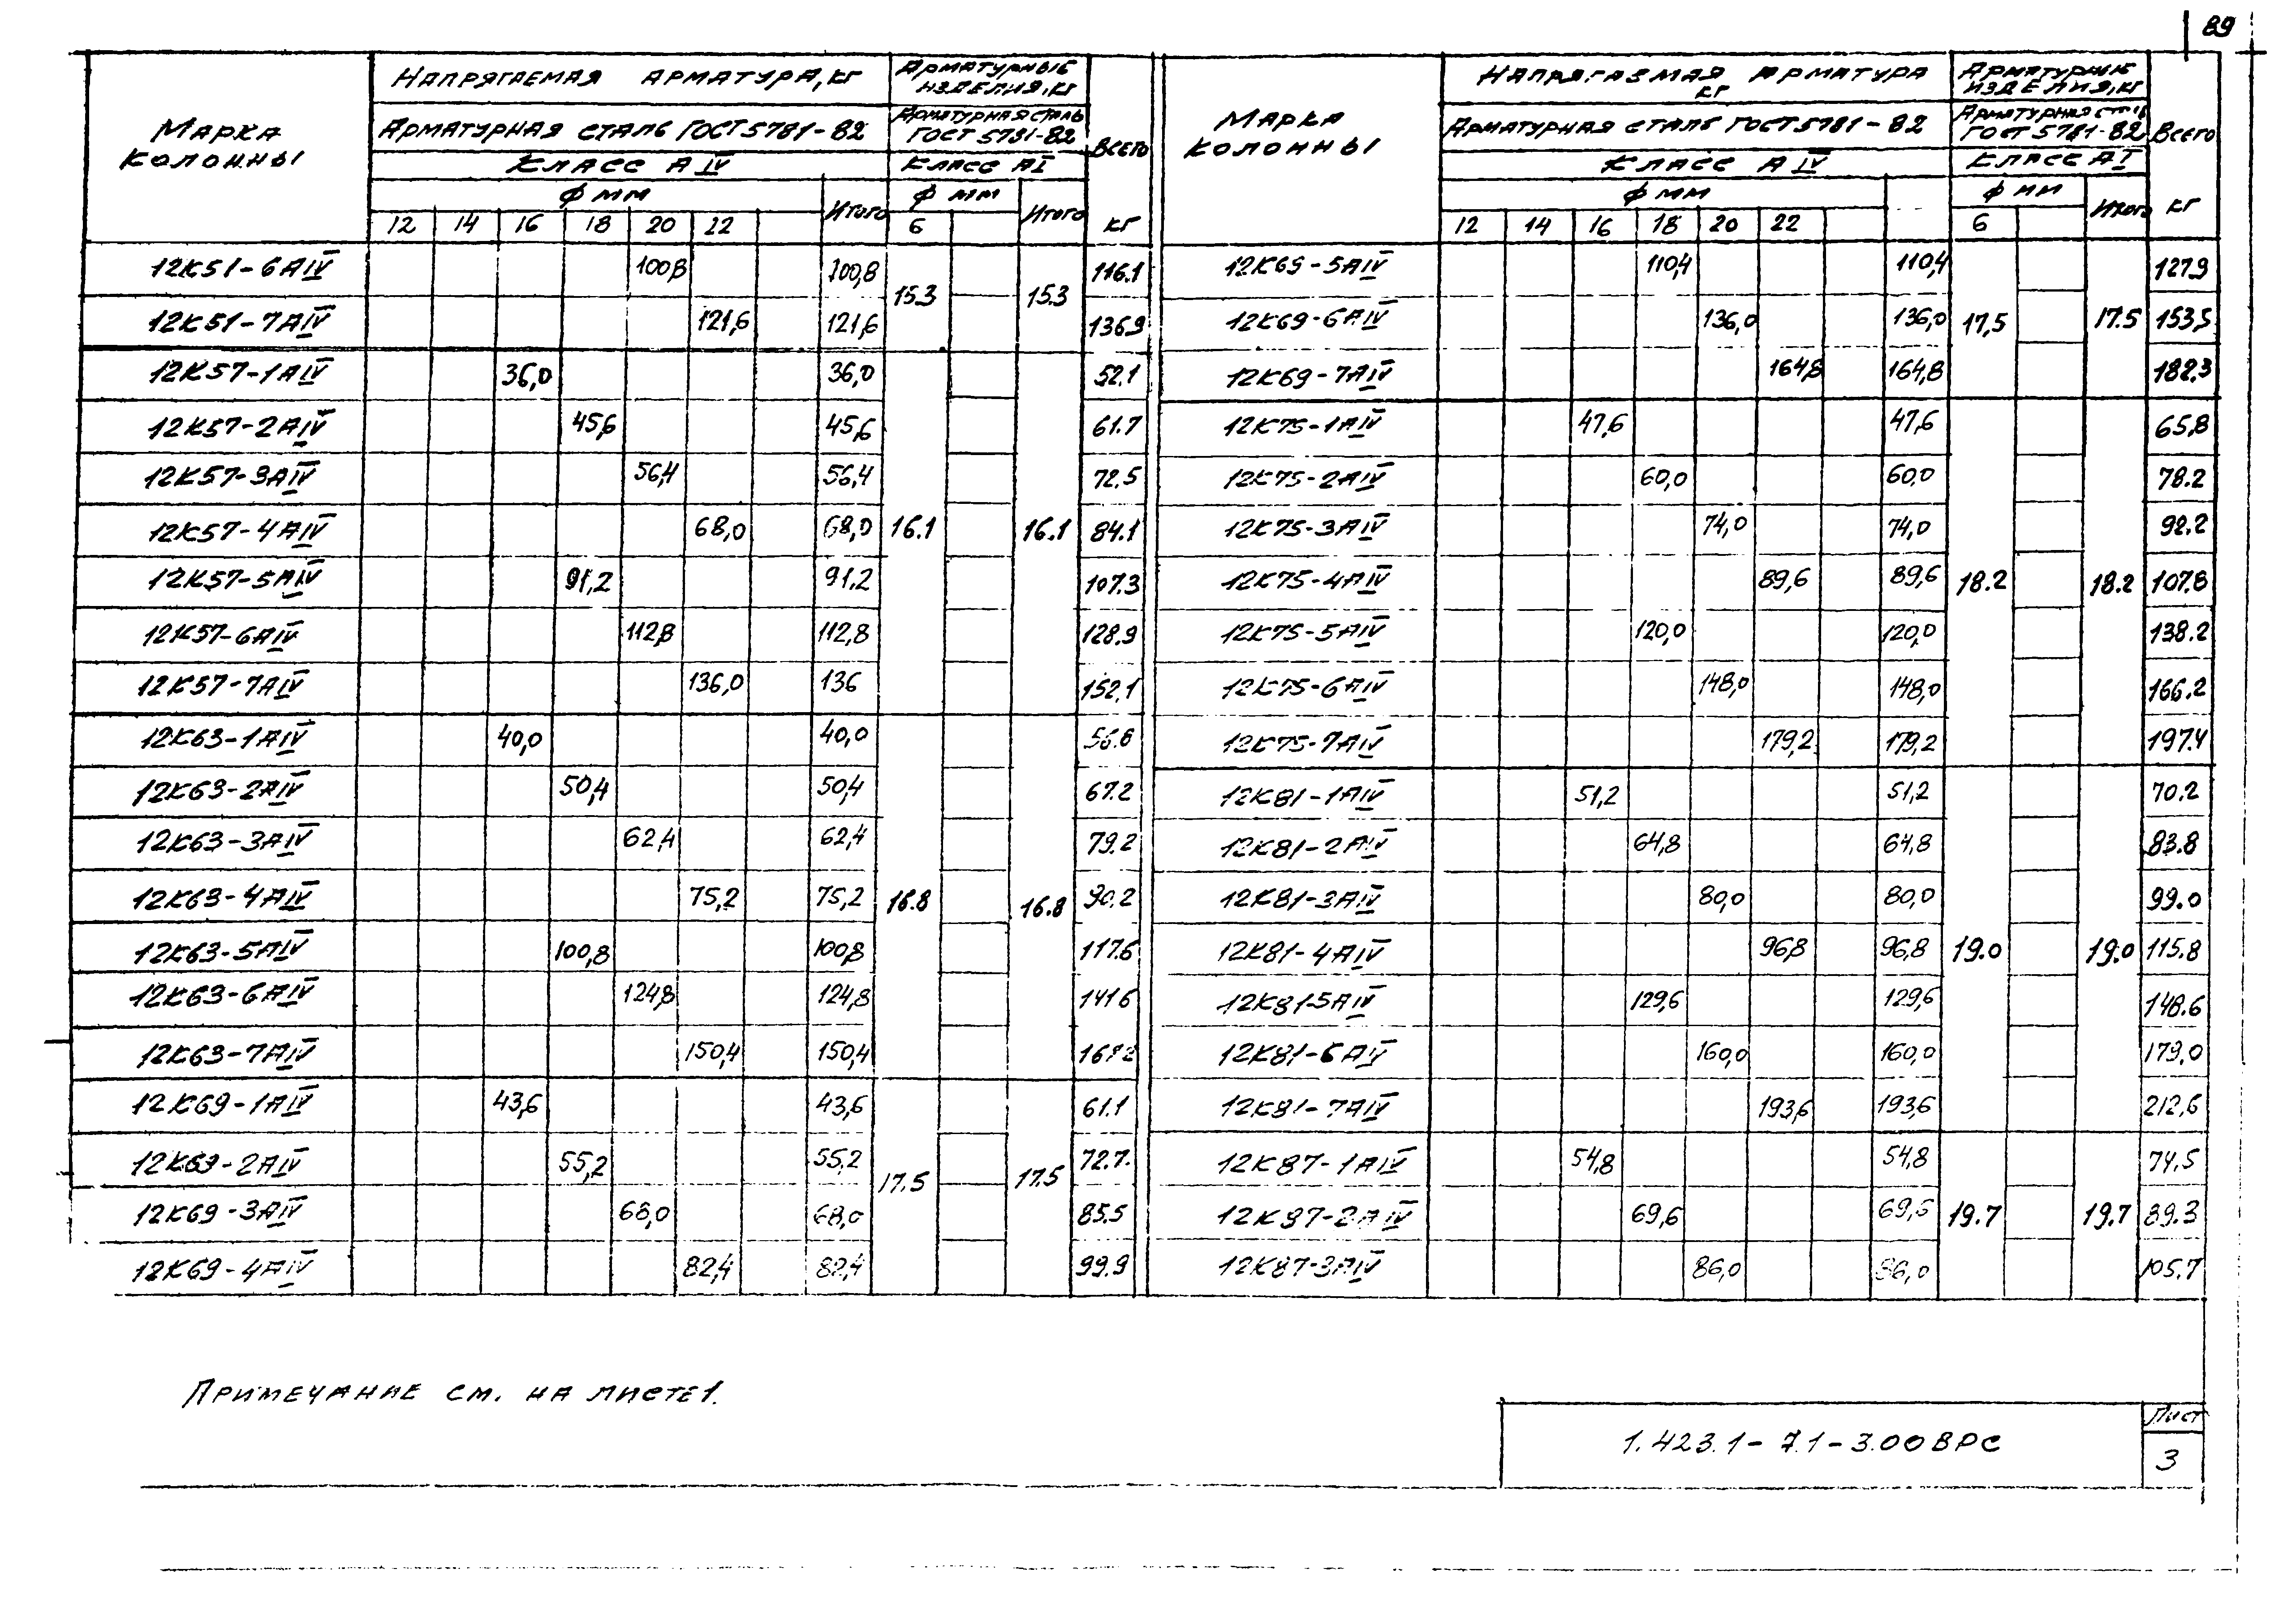 89
Марка колонны | Напрягаемая арматура, кг | Арматурные изделия, кг | Всего кг
Арматурная сталь ГОСТ 5781-82 | Арматурная сталь ГОСТ 5781-82
Класс А IV | Класс А I
ф мм | Итого | ф мм | Итого
12 14 16 18 20 22 | 6
12К51-6АIV 100,8 100,8 15.3 15.3 116.1
12К51-7АIV 121,6 121,6 136.9
12К57-1АIV 36,0 36,0 52.1
12К57-2АIV 45,6 45,6 61.7
12К57-3АIV 56,4 56,4 72.5
12К57-4АIV 68,0 68,0 16.1 16.1 84.1
12К57-5АIV 91,2 91,2 107.3
12К57-6АIV 112,8 112,8 128.9
12К57-7АIV 136,0 136 152,1
12К63-1АIV 40,0 40,0
12К63-2АIV 50,4 50,4 67.2
12К63-3АIV 62,4 62,4 79.2
12К63-4АIV 75,2 75,2 16.8 16.8 90.2
12К63-5АIV 100,8 100,8 117.6
12К63-6АIV 124,8 124,8 141.6
12К63-7АIV 150,4 150,4
12К69-1АIV 43,6 43,6 61.1
12К69-2АIV 55,2 55,2 17.5 17.5 72.7
12К69-3АIV 68,0 68,0 85.5
12К69-4АIV 82,4 82,4 99.9
Марка колонны | Напрягаемая арматура кг | Арматурные изделия, кг | Всего кг
Арматурная сталь ГОСТ 5781-82 | Арматурная сталь ГОСТ 5781-82
Класс А IV | Класс А I
ф мм | ф мм | Итого
12 14 16 18 20 22 | 6
12К69-5АIV 110,4 110,4 127.9
12К69-6АIV 136,0 136,0 17,5 17.5 153,5
12К69-7АIV 164,8 164,8 182.3
12К75-1АIV 47,6 47,6 65,8
12К75-2АIV 60,0 60,0 78.2
12К75-3АIV 74,0 74,0 92.2
12К75-4АIV 89,6 89,6 18.2 18.2 107.8
12К75-5АIV 120,0 120,0 138.2
12К75-6АIV 148,0 148,0 166.2
12К75-7АIV 179,2 179,2 197.4
12К81-1АIV 51,2 51,2 70.2
12К81-2АIV 64,8 64,8 83.8
12К81-3АIV 80,0 80,0 99.0
12К81-4АIV 96,8 96,8 19.0 19.0 115.8
12К81-5АIV 129,6 129,6 148.6
12К81-6АIV 160,0 160,0 179.0
12К81-7АIV 193,6 193,6 212,6
12К87-1АIV 54,8 54,8 74.5
12К87-2АIV 69,6 69,6 19.7 19.7 89.3
12К87-3АIV 86,0 86,0 105.7
Примечание см. на листе 1.
1.423.1-7.1-3.00ВРС
Лист
3